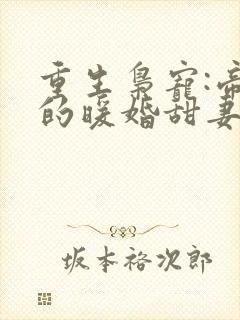 重生枭宠:帝
的暖婚甜妻
坂本裕次郎